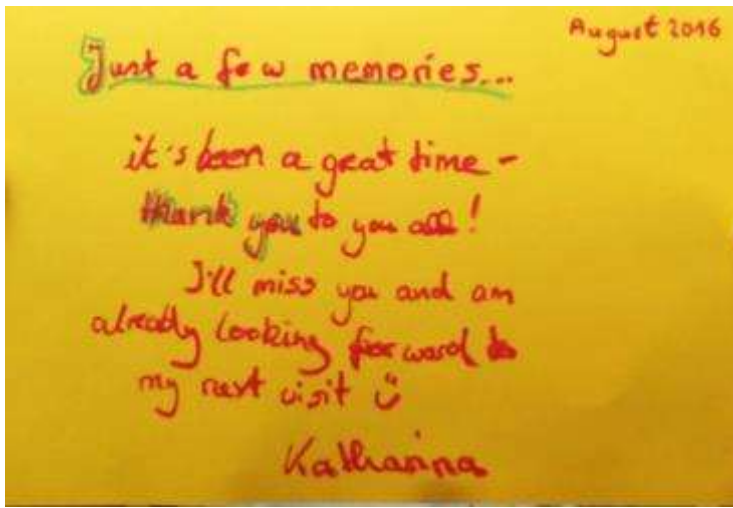 August 2016
Just a few memories...
it's been a great time -
thank you to you all!
I'll miss you and am
already looking forward to
my next visit ü
Katharina